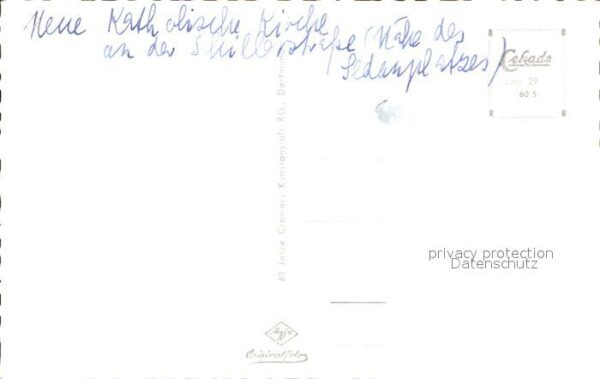 Neue Katholische Kirche
an der Schillerstraße (Nähe des
Sedanplatzes)
Cekade
60 5
60 Jahre Cramers Kunstanstalt KG., Dortmund
privacy protection
Datenschutz
Agfa
Originalfoto